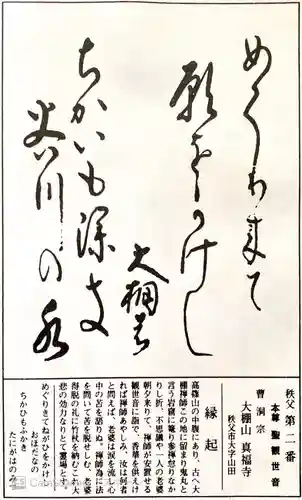 めぐり来て
願をかけし
大棚の
ちかいも深き
谷川の水
秩父 第二番
本尊 聖観世音
曹洞宗
大棚山 真福寺
秩父市大字山田
縁起
高篠山の中腹にあり、古へ大
棚禅師この地に留まり鬼丸と
言う岩窟に篭り参禅怠りなか
りし折、不思議や一人の老婆
朝夕来りて、禅師が安置せる
観世音に詣で、香華を供えけ
れば禅師あやしみ、汝は何者
と問えば、老婆は涙を流し
中の苦を語りぬ。禅師為に法
を問いて苦を脱せしむ。老婆
得脱の礼に竹杖を納むこ
悲の効力なりとて霊場と
めぐりきてねがひをかけし
おほだなの
ちかひもふかき
たにがはのみづ